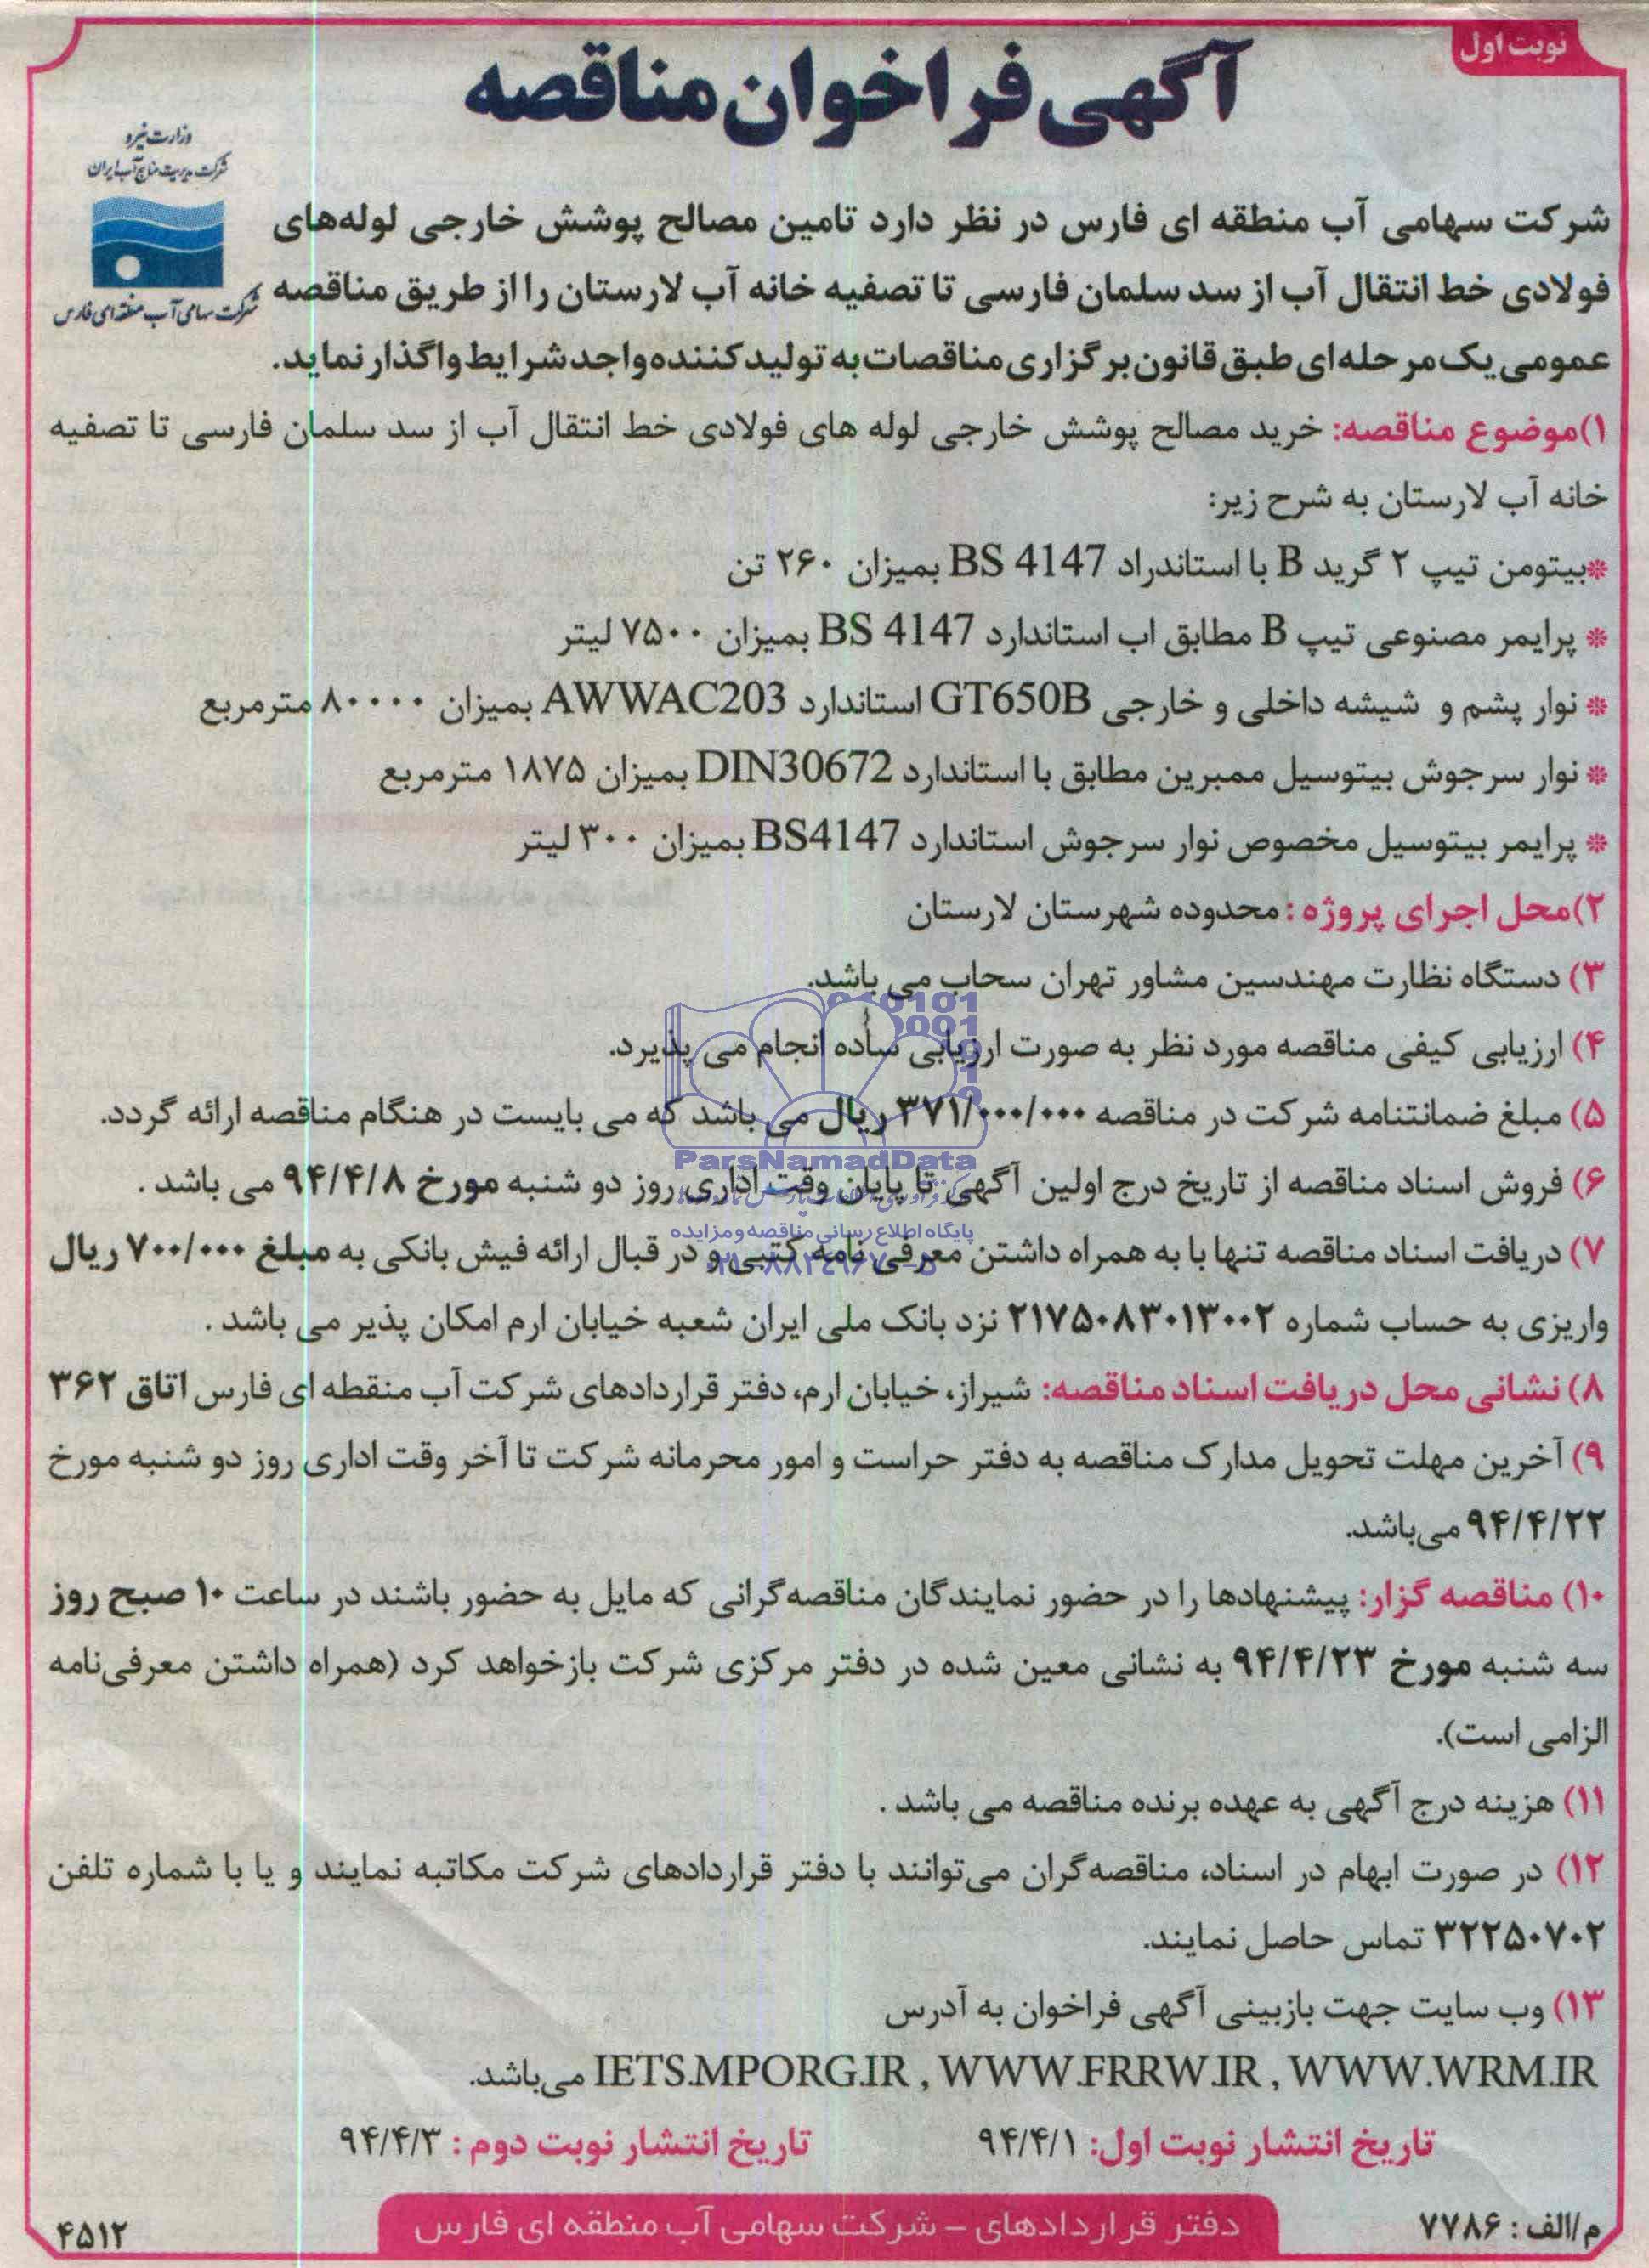 نوبت اول
آگهی فراخوان مناقصه
وزارت نیرو
شرکت مدیریت منابع آب ایران
شرکت سهامی آب منطقه ای فارس
شرکت سهامی آب منطقه ای فارس در نظر دارد تامین مصالح پوشش خارجی لوله‌های
فولادی خط انتقال آب از سد سلمان فارسی تا تصفیه خانه آب لارستان را از طریق مناقصه
عمومی یک مرحله‌ای طبق قانون برگزاری مناقصات به تولیدکننده واجد شرایط واگذار نماید.
۱)موضوع مناقصه: خرید مصالح پوشش خارجی لوله های فولادی خط انتقال آب از سد سلمان فارسی تا تصفیه
خانه آب لارستان به شرح زیر:
*بیتومن تیپ ۲ گرید B با استاندراد BS 4147 بمیزان ۲۶۰ تن
* پرایمر مصنوعی تیپ B مطابق اب استاندارد BS 4147 بمیزان ۷۵۰۰ لیتر
* نوار پشم و شیشه داخلی و خارجی GT650B استاندارد AWWAC203 بمیزان ۸۰۰۰۰ مترمربع
* نوار سرجوش بیتوسیل ممبرین مطابق با استاندارد DIN30672 بمیزان ۱۸۷۵ مترمربع
* پرایمر بیتوسیل مخصوص نوار سرجوش استاندارد BS4147 بمیزان ۳۰۰ لیتر
۲)محل اجرای پروژه : محدوده شهرستان لارستان
۳) دستگاه نظارت مهندسین مشاور تهران سحاب می باشد.
۴) ارزیابی کیفی مناقصه مورد نظر به صورت ارزیابی ساده انجام می پذیرد.
۵) مبلغ ضمانتنامه شرکت در مناقصه ۳۷۱/۰۰۰/۰۰۰ ریال می باشد که می بایست در هنگام مناقصه ارائه گردد.
ParsNamadData
۶) فروش اسناد مناقصه از تاریخ درج اولین آگهی تا پایان وقت اداری روز دو شنبه مورخ ۹۴/۴/۸ می باشد .
پایگاه اطلاع رسانی مناقصه و مزایده
۷) دریافت اسناد مناقصه تنها با به همراه داشتن معرفی نامه کتبی و در قبال ارائه فیش بانکی به مبلغ ۷۰۰/۰۰۰ ریال
واریزی به حساب شماره ۲۱۷۵۰۸۳۰۱۳۰۰۲ نزد بانک ملی ایران شعبه خیابان ارم امکان پذیر می باشد .
۸) نشانی محل دریافت اسناد مناقصه: شیراز، خیابان ارم، دفتر قراردادهای شرکت آب منقطه ای فارس اتاق ۳۶۲
۹) آخرین مهلت تحویل مدارک مناقصه به دفتر حراست و امور محرمانه شرکت تا آخر وقت اداری روز دو شنبه مورخ
۹۴/۴/۲۲ می‌باشد.
۱۰) مناقصه گزار: پیشنهادها را در حضور نمایندگان مناقصه‌گرانی که مایل به حضور باشند در ساعت ۱۰ صبح روز
سه شنبه مورخ ۹۴/۴/۲۳ به نشانی معین شده در دفتر مرکزی شرکت بازخواهد کرد (همراه داشتن معرفی‌نامه
الزامی است).
۱۱) هزینه درج آگهی به عهده برنده مناقصه می باشد .
۱۲) در صورت ابهام در اسناد، مناقصه‌گران می‌توانند با دفتر قراردادهای شرکت مکاتبه نمایند و یا با شماره تلفن
۳۲۲۵۰۷۰۲ تماس حاصل نمایند.
۱۳) وب سایت جهت بازبینی آگهی فراخوان به آدرس
IETS.MPORG.IR , WWW.FRRW.IR , WWW.WRM.IR می‌باشد.
تاریخ انتشار نوبت اول: ۹۴/۴/۱ تاریخ انتشار نوبت دوم : ۹۴/۴/۳
م/الف : ۷۷۸۶
دفتر قراردادهای – شرکت سهامی آب منطقه ای فارس
۴۵۱۲